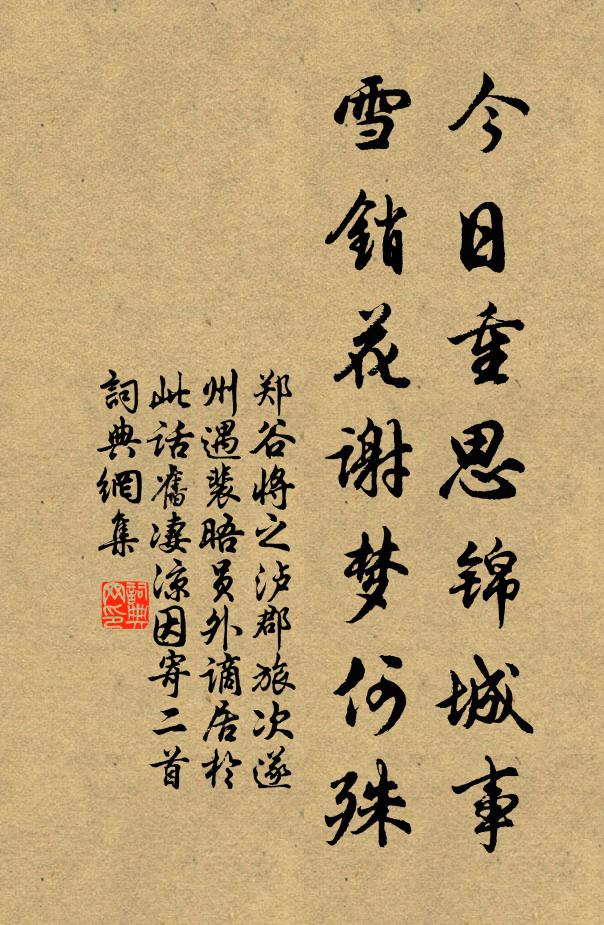 今日重思锦城事
雪销花谢梦何殊
郑谷将之泸郡旅次遂
州遇裴晤员外谪居於
此话舊凄凉因寄二首
詞典網集
詞典
网印